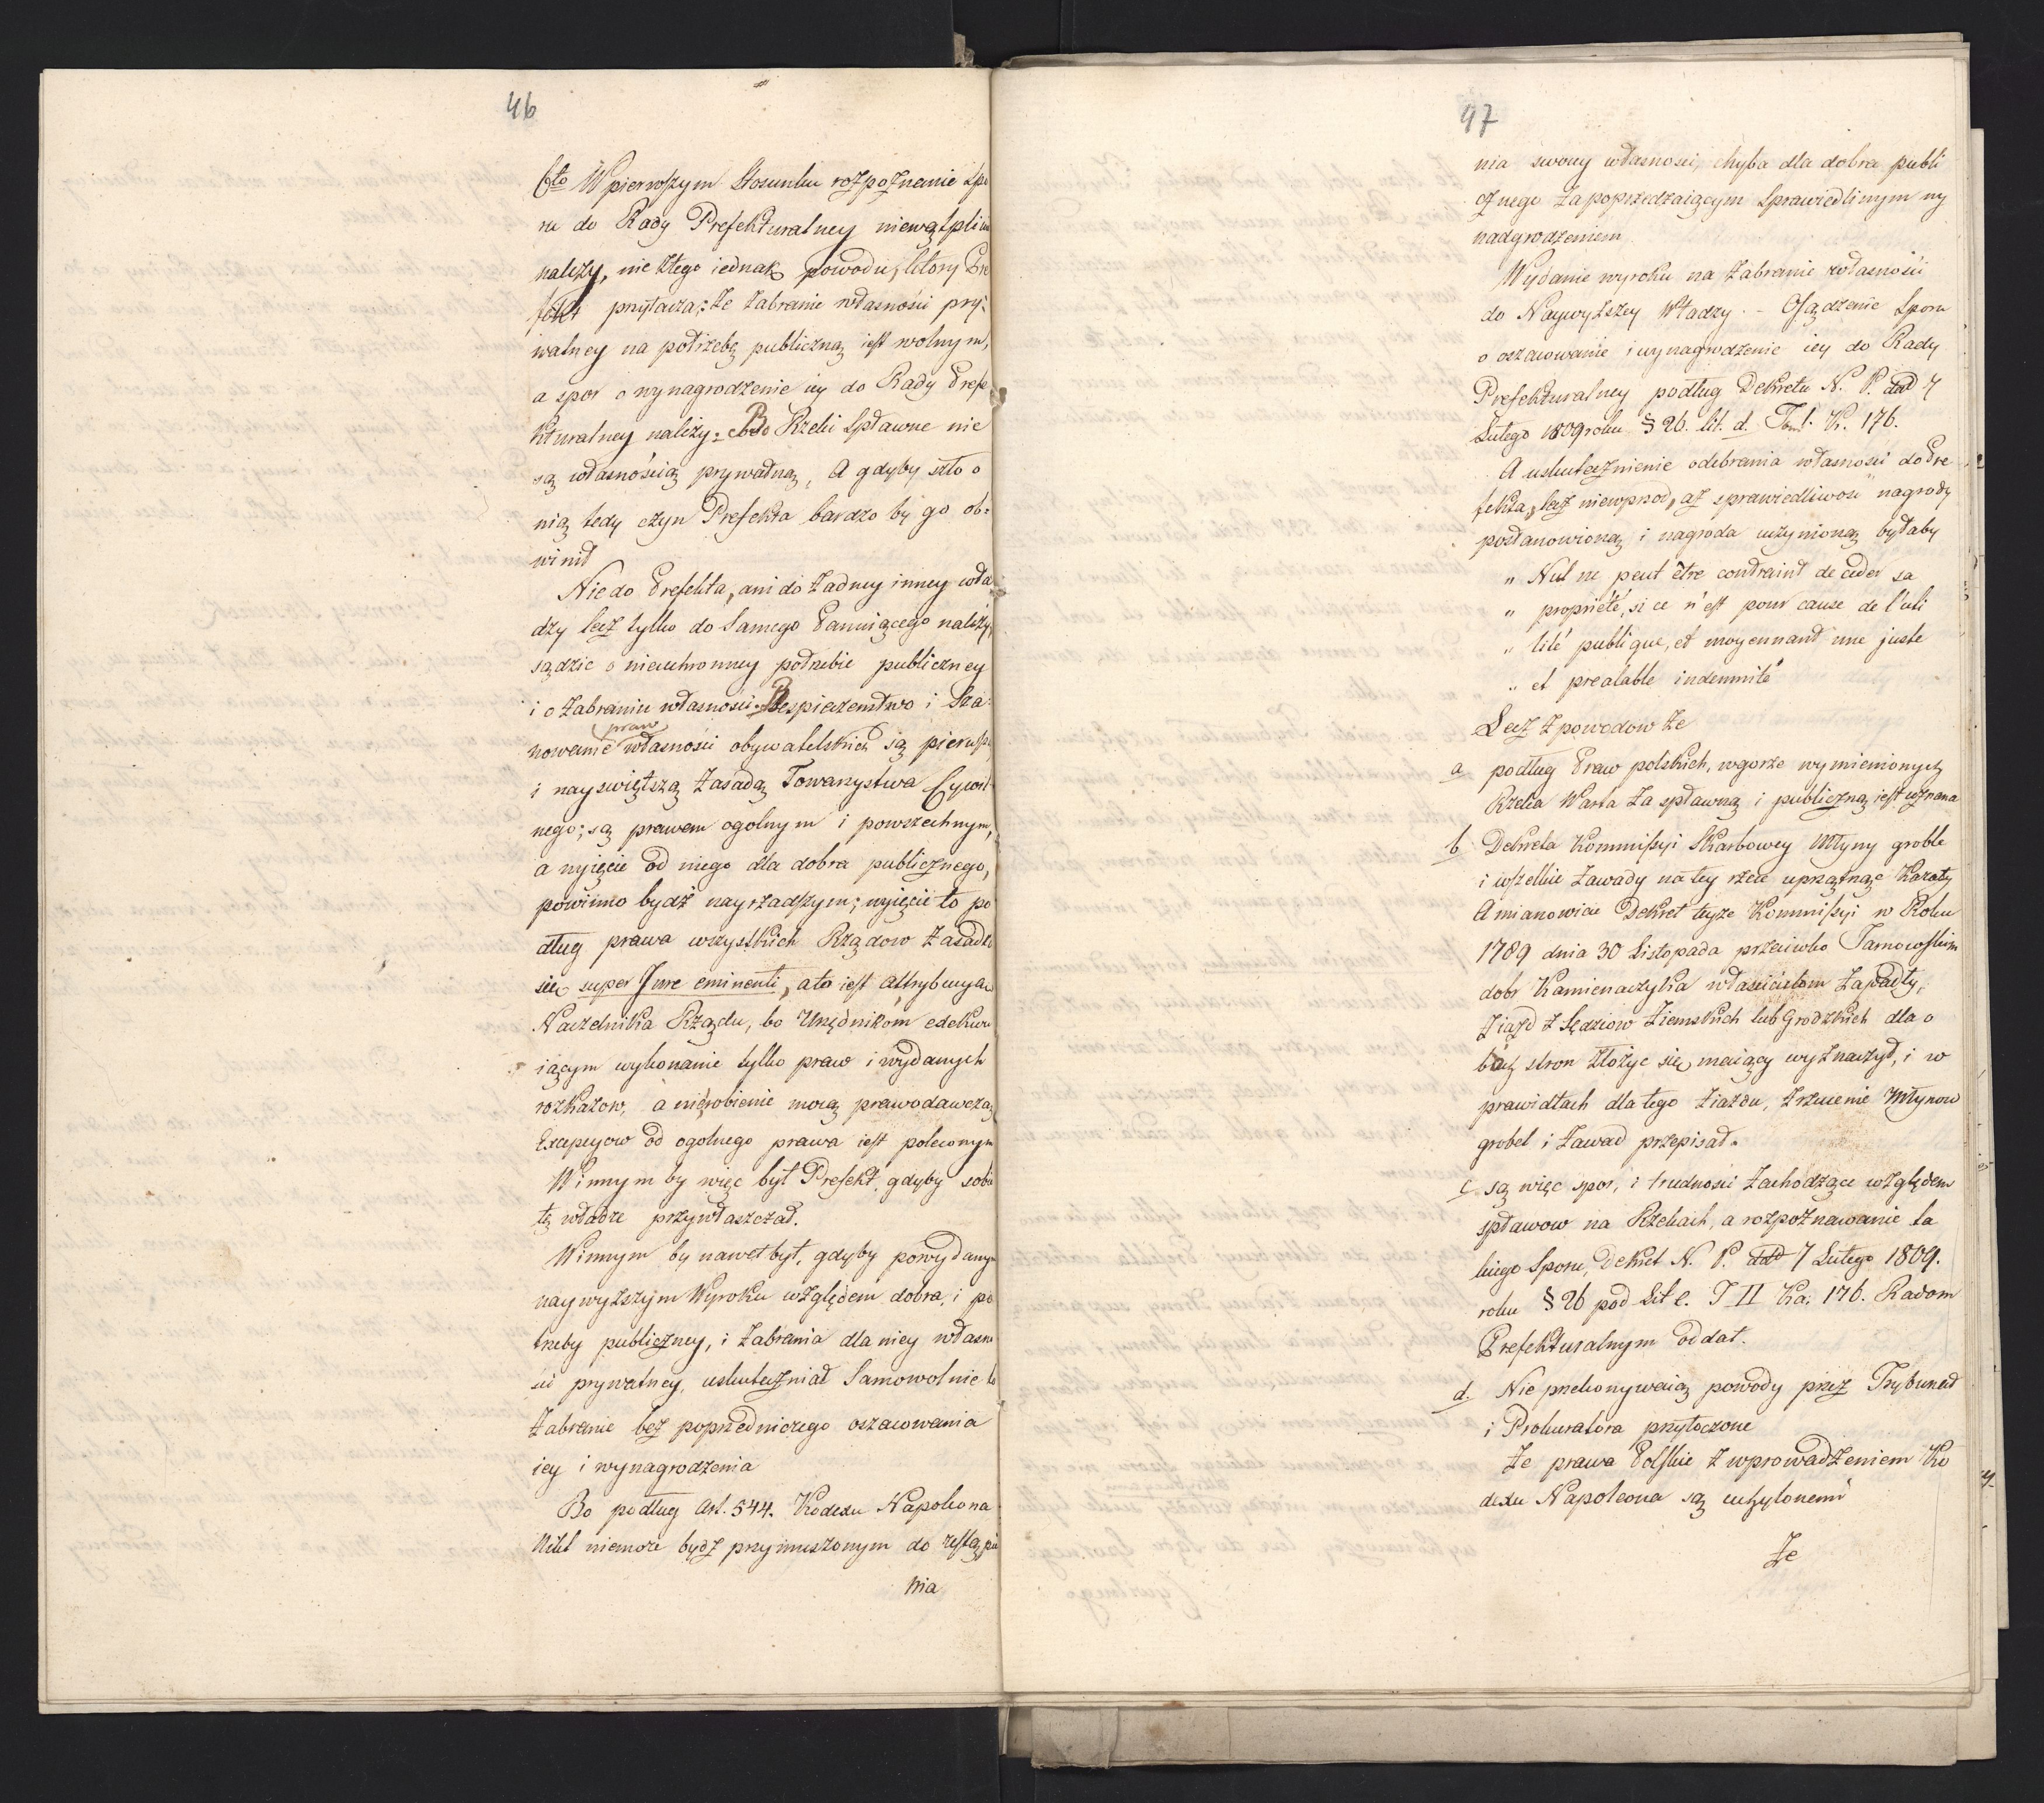 46
6to W pierwszym Stosunku rozpoznanie Spo
ru do Rady Prefekturalney niewątpliw
należy, nie z tego iednak powodu, ktory Pre
fekt przytacza: że zabranie własności pry-
watney na potrzebę publiczną iest wolnym,
a spor o wynagrodzenie iey do Rady Prefe
kturalney należy: Bo Rzeki Spławne nie
są własnością prywatną, A gdyby szło o
nią tedy czyn Prefekta bardzo by go ob-
winił
Nie do Prefekta, ani do żadney inney wła
dzy lecz tylko do Samego Panuiącego należy,
sądzic o nieuchronney potrzebie publiczney
i o zabraniu własności. Bespieczeństwo i Sza-
praw
nowanie własności obywatelskich są pierwszą
i nayswiętszą zasadą Towarzystwa Cywil
nego; są prawem ogolnym i powszechnym,
a wyięcie od niego dla dobra publicznego,
powinno bydź nayrzadszym; wyięcie to po
dług prawa wszystkich Rządow zasadza
się super Jure eminenti, a to iest attrybucya
Naczelnika Rządu, bo Urzędnikom exekwu
iącym wykonanie tylko praw i wydanych
rozkazow, a nie robienie mocą prawodawczą
Excepcyow od ogolnego prawa iest poleconym
Winnym by więc był Prefekt, gdyby sobie
tę władze przywłaszczał.
Winnym by nawet był, gdyby po wydanym
naywyższym Wyroku względem dobra, i po
trzeby publiczney, i zabrania dla niey własno
sci prywatney, uskuteczniał Samowolnie to
zabranie bez poprzedniczego oszacowania
iey i wynagrodzenia
Bo podług Art. 544. Kodexu Napoleona
Nikt niemoże bydź przymuszonym do zstąpie
nia
47
nia swoiey własnosci, chyba dla dobra publi
cznego za poprzedzaiącym Sprawiedliwym wy
nadgrodzeniem
Wydanie wyroku na zabranie własności
do Naywyższey Władzy. – Osądzenie Sporu
o oszacowanie i wynagrodzenie iey do Rady
Prefekturalney podług Dekretu N. P. dad 7
Lutego 1809 roku § 26. lit. d. Tom I. K. 176.
A uskutecznienie odebrania własnosci do Pre
fekta, lecz niewprzod, aż sprawiedliwość nagrody
postanowioną i nagroda uczynioną byłaby
„ Nul ne peut être contraint de ceder sa
„ propriété, si ce n'est pour cause de l'uti
„ lité publique, et moyennant une juste
„ et prealable indemnité"
Lecz z powodow że
a podług Praw polskich, wgorze wymienionych
Rzeka Warta za spławną i publiczną iest uznana
b Dekreta Kommissyi Skarbowey Młyny groble
i wszelkie zawady na tey rzece uprzątnąć Kazały
A mianowicie Dekret teyże Kommissyi w Roku
1789 dnia 30 Listopada przeciwko Tarnowskim
dobr Kamienaczyka właścicielom zapadły,
Ziazd z Sędziow Ziemskich lub Grodzkich dla o
bu stron złożyc się maiący wyznaczył, i w
prawidłach dla tego ziazdu, zrzucenie Młynow
grobel i zawad przepisał.
c są więc spor, i trudności zachodzące względem
spławow na Rzekach, a rozpoznawanie ta
kiego Sporu, Dekret N. P. dad 7 Lutego 1809.
roku § 26 pod Lit e. T II Ka: 176. Radom
Prefekturalnym oddał.
d. Nie przekonywaią powody przez Trybunał
i Prokuratora przytoczone
że prawa Polskie z wprowadzeniem Ko
dexu Napoleona są uchylonemi
Ze